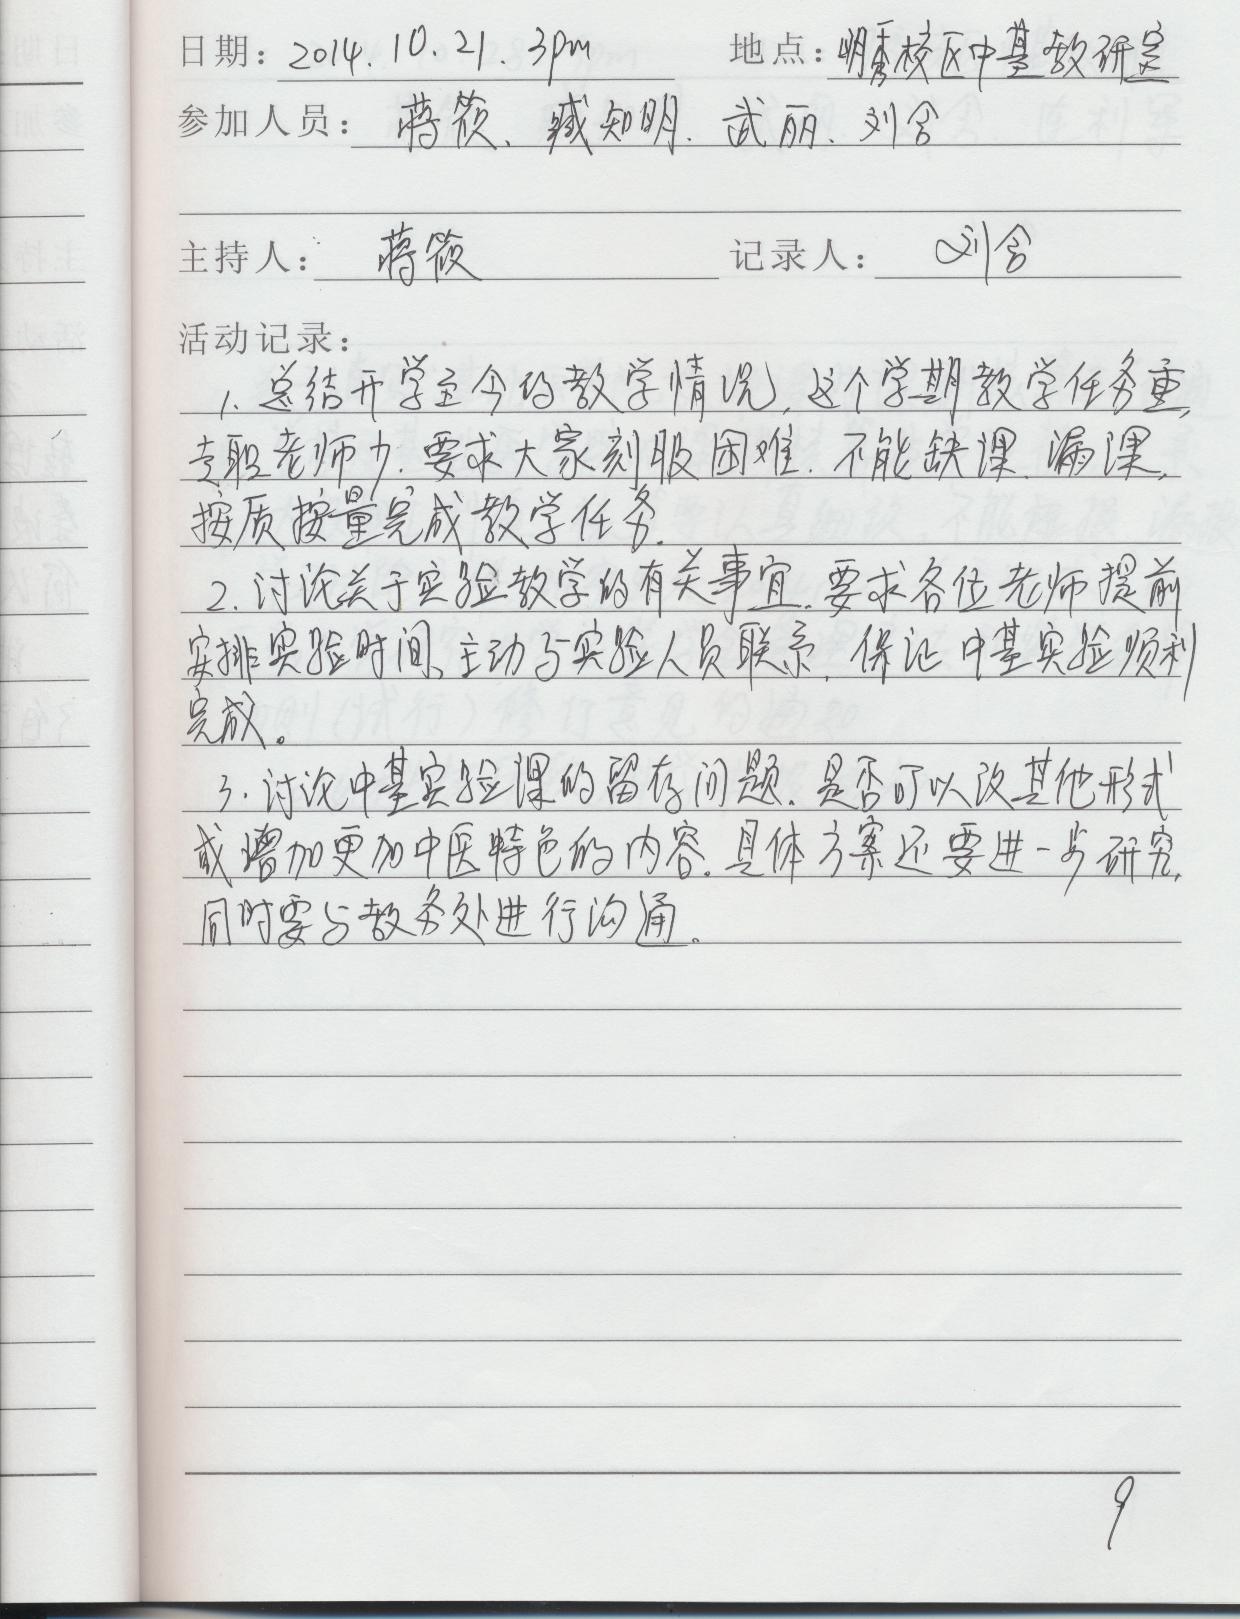 日期：2014.10.21.3pm 地点：明秀校区中基教研室
参加人员：蒋筱、臧知明、武丽、刘含
主持人：蒋筱 记录人：刘含
活动记录：
1、总结开学至今的教学情况，这个学期教学任务重，
专职老师少，要求大家刻服困难，不能缺课、漏课，
按质按量完成教学任务。
2、讨论关于实验教学的有关事宜，要求各位老师提前
安排实验时间、主动与实验人员联系，保证中基实验顺利
完成。
3、讨论中基实验课的留存问题，是否可以改其他形式
或增加更加中医特色的内容，具体方案还要进一步研究，
同时要与教务处进行沟通。
9